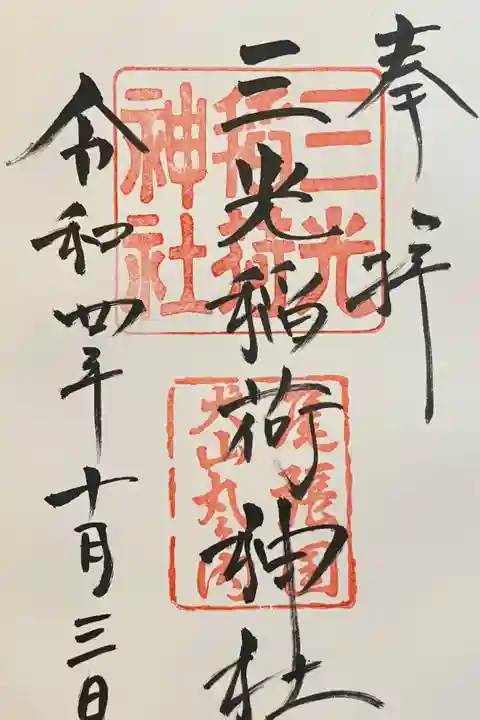 奉拝
三光稲荷神社
令和四年十月三日
三光
稲荷
神社
尾張国
犬山丸の内